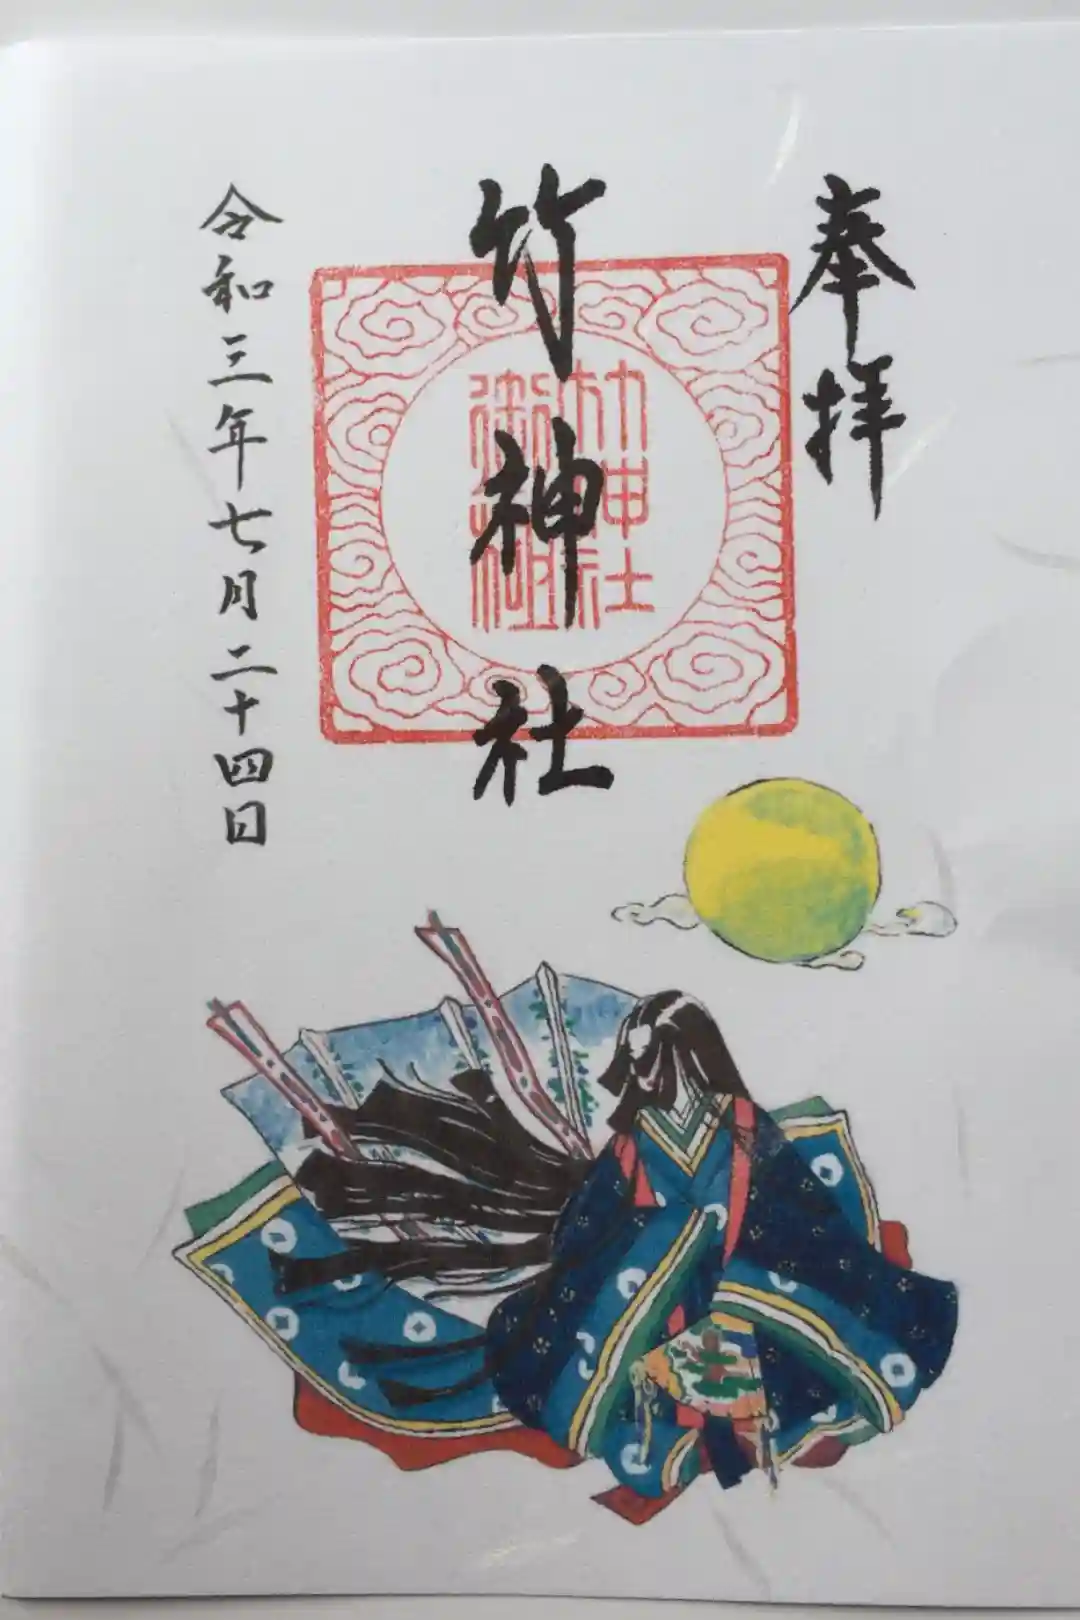 奉拝
竹神社
竹神社
御璽
令和三年七月二十四日